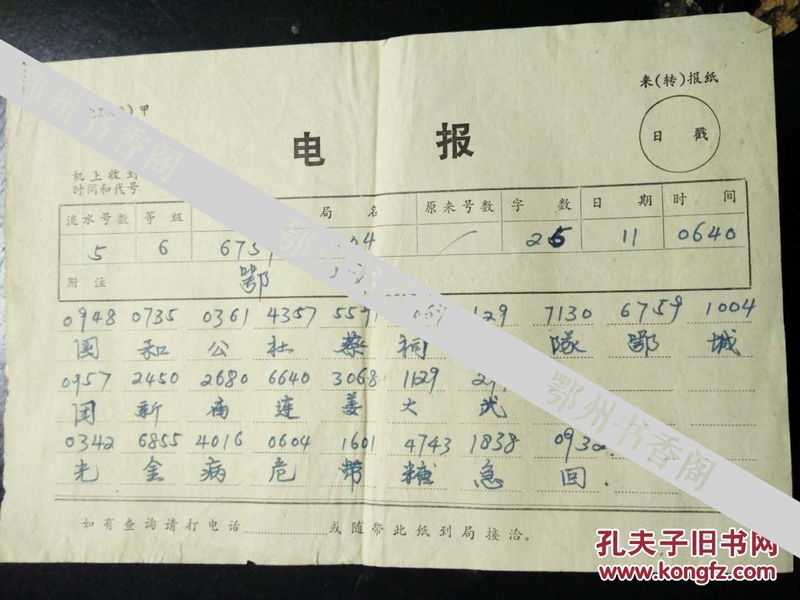 来(转)报纸
甲
电 报
日 戳
机上收到
时间和代号
流水号数 等级 局名 原来号数 字数 日期 时间
5 6 6759 04 / 25 11 0640
附注 鄂
0948 0735 0361 4357 7130 6759 1004
国 和 公 社 蔡 祠 隊 鄂 城
0957 2450 2680 6640 3068 1129
团 新 连 姜 大
0342 6855 4016 0604 1601 4743 1838 0932
光 金 病 危 带 糖 急 回.
如有查询请打电话 或随带此纸到局接洽。
鄂州书香阁
鄂州书香阁
孔夫子旧书网
KONGFZ.COM